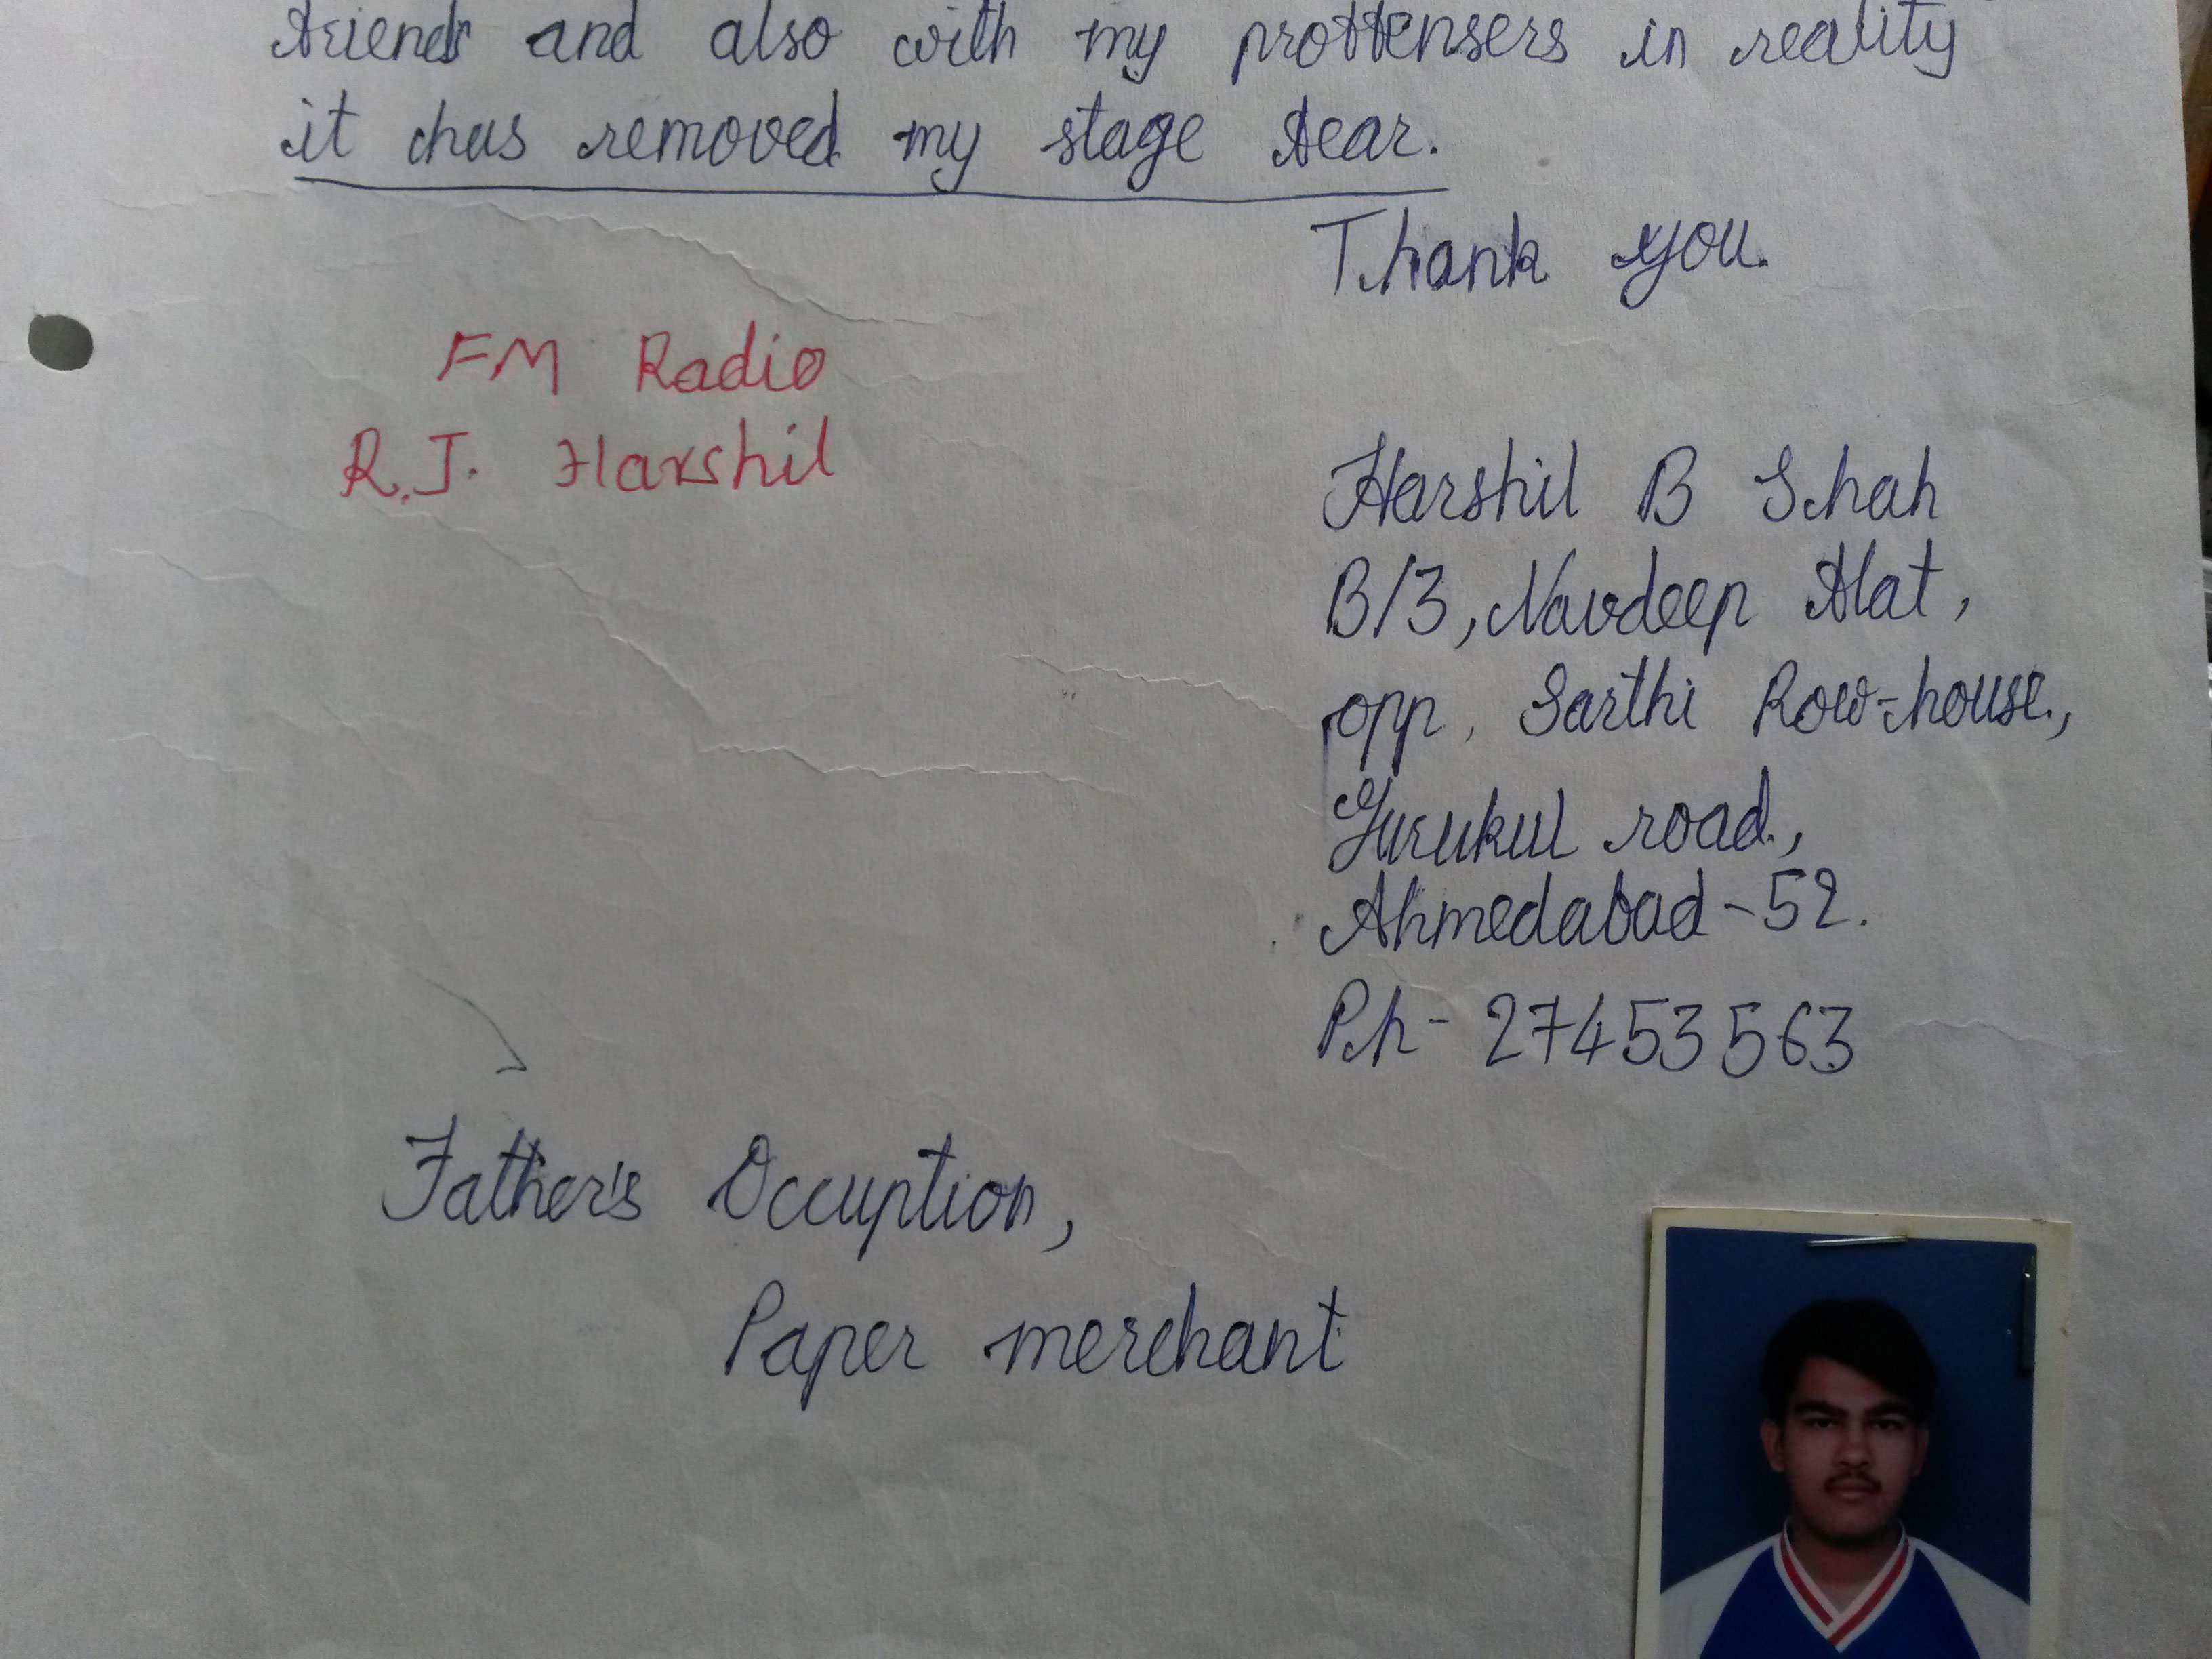 friends and also with my proffensers in reality
it has removed my stage fear.
Thank you.
FM Radio
R.J. Harshil
Harshil B Shah
B/3, Navdeep flat,
opp, Sarthi Row-house,
Gurukul road,
Ahmedabad-52.
Ph- 27453563
Father's Occuption,
Paper merchant